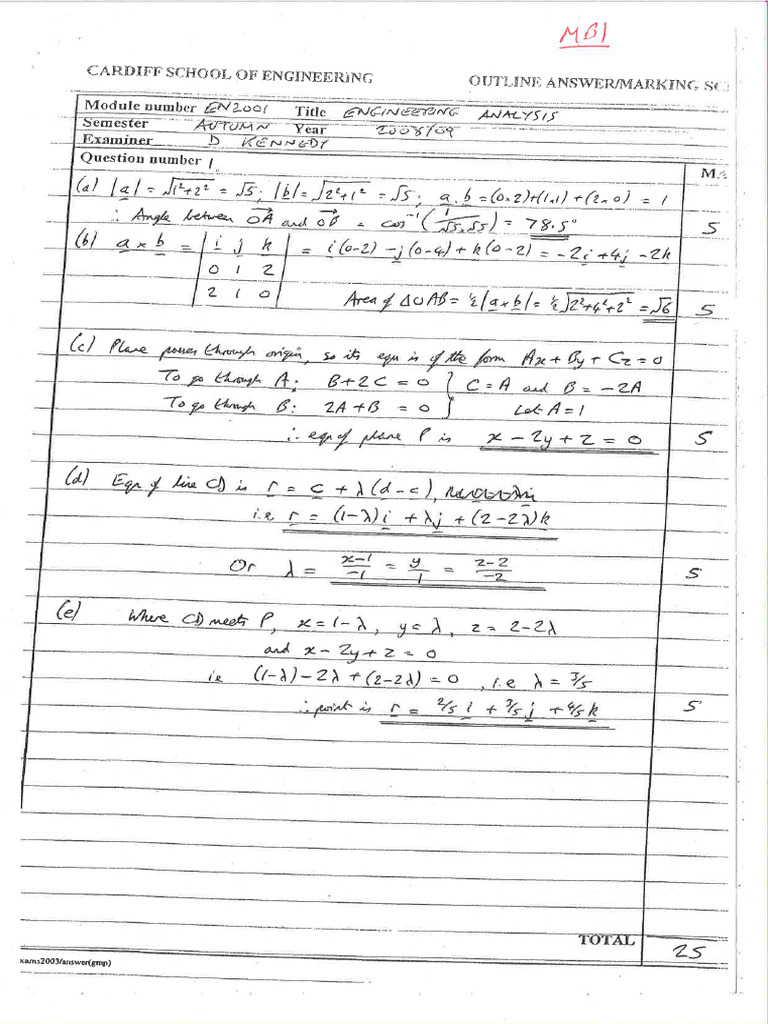 MB1
CARDIFF SCHOOL OF ENGINEERING OUTLINE ANSWER/MARKING SC
Module number EN2001 Title ENGINEERING ANALYSIS
Semester AUTUMN Year 2008/09
Examiner D KENNEDY
Question number 1. MA
(a) |a| = √1²+2² = √5; |b| = √2²+1² = √5; a.b = (0×2)+(1×1)+(2×0) = 1
∴ Angle between OA and OB = cos⁻¹(1/√5.√5) = 78.5° 5
(b) a × b = | i j k | = i(0-2) - j(0-4) + k(0-2) = -2i + 4j - 2k
0 1 2
2 1 0 Area of ΔOAB = ½|a×b| = ½√2²+4²+2² = √6 5
(c) Plane passes through origin, so its eqn is of the form Ax + By + Cz = 0
To go through A: B + 2C = 0 } C = A and B = -2A
To go through B: 2A + B = 0 } Let A = 1
∴ eqn of plane P is x - 2y + z = 0 5
(d) Eqn of line CD is r = c + λ(d-c),
i.e r = (1-λ)i + λj + (2-2λ)k
Or λ = x-1/-1 = y/1 = z-2/-2 5
(e) Where CD meets P, x = 1-λ, y = λ, z = 2-2λ
and x - 2y + z = 0
ie (1-λ) - 2λ + (2-2λ) = 0, i.e λ = 3/5
∴ point is r = 2/5 i + 3/5 j + 4/5 k 5
TOTAL 25
xams2003/answer(gmp)